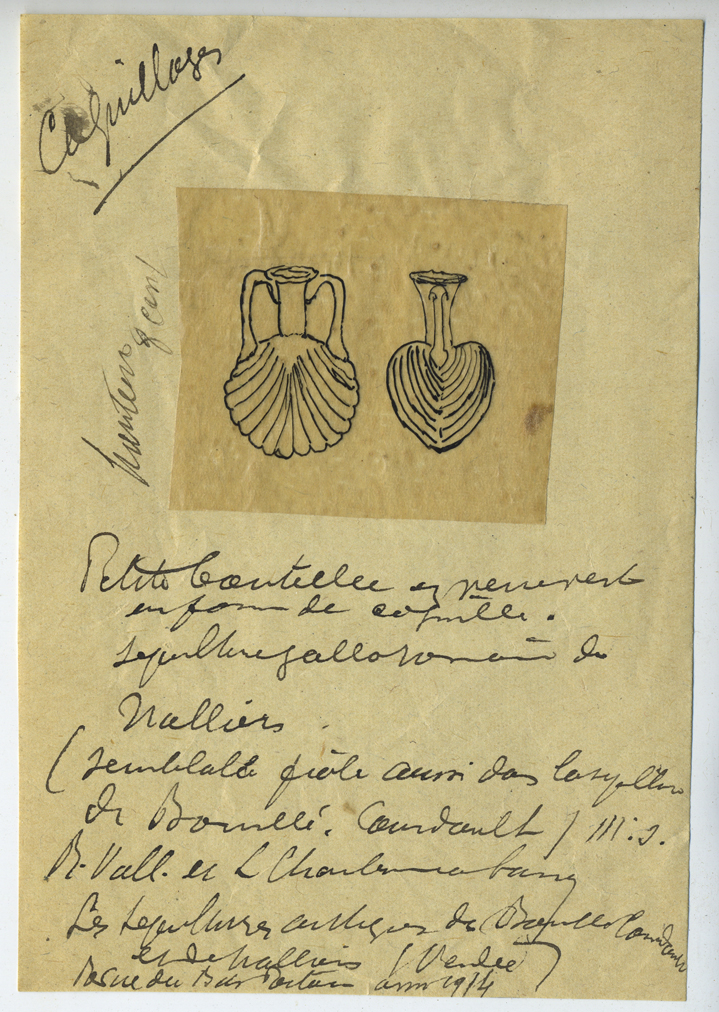 Coquillages
hauteur 8 cent
Petite bouteille en verre vert
en forme de coquille.
sépulture gallo romaine de
Nalliers
(semblable fiole aussi dans la sépulture
de Bouillé. Courdault) III. s.
R. Vall. et L Charbonneau
Les sépultures antiques de Bouillé Courdault
et de Nalliers (Vendée)
Revue du Bas Poitou 1914